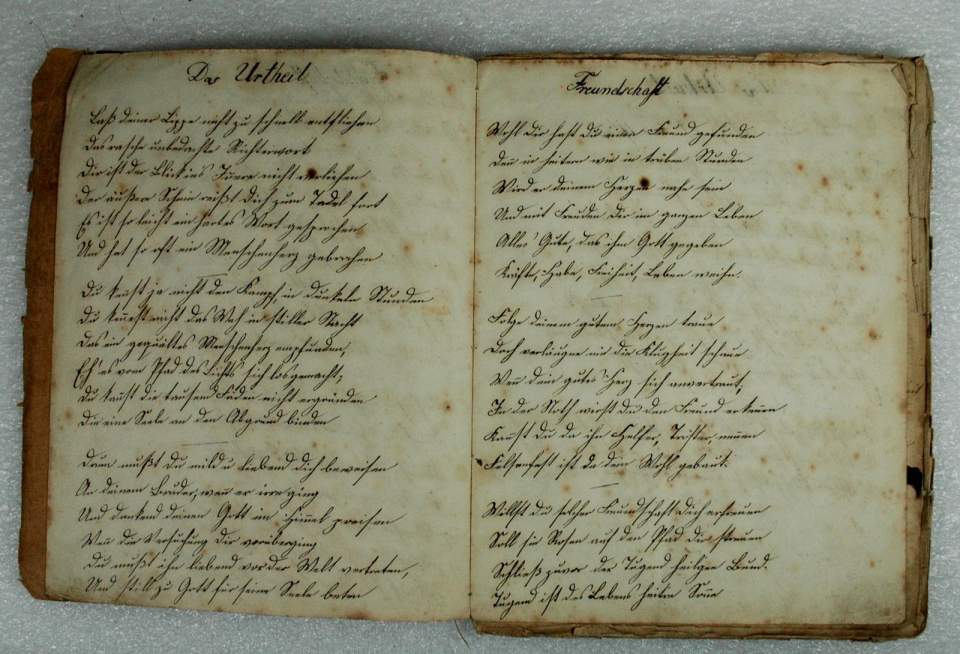 Das Urtheil
Laß deiner Lippe nicht zu schnell entfliehen
Das rasche unbedachte Richterwort
Dir ist der Blick ins Innere nicht verliehen
Der äußere Schein reißt dich zum Tadel fort
Es ist so leicht ein hartes Wort gesprochen,
Und hat so oft ein Menschenherz gebrochen
Du kennst ja nicht den Kampf, in dunkeln Stunden
Du kennst nicht das Weh in stiller Nacht
Das ein gequältes Menschenherz empfunden,
Eh' es vom Pfad des Lichts sich losgemacht;
Du kannst die tausend Fäden nicht ergründen
Die eine Seele an den Abgrund binden
Drum mußt du mild u liebend dich beweisen
An deinem Bruder, wenn er irre ging
Und dankend deinen Gott im Himmel preisen
Wenn die Versuchung dir vorüberging
Du mußt ihn liebend vor der Welt vertreten,
Und still zu Gott für seine Seele beten
Freundschaft
Wohl dir hast du einen Freund gefunden
Denn in heitern wie in trüben Stunden
Wird er deinem Herzen nahe sein
Und mit Freuden dir im ganzen Leben
Alles Gute, das ihm Gott gegeben
Kräfte, Habe, Freiheit, Leben weihn.
Folge deinem guten Herzen traue
Doch verläugne nie die Klugheit schaue
Wem dein gutes Herz sich anvertraut,
In der Noth wirst du den Freund erkennen
Kannst du da ihn Helfer, Tröster, nennen
Felsenfest ist da dein Wohl gebaut.
Willst du solcher Freundschaft dich erfreuen
Soll sie Rosen auf den Pfad dir streuen
Schließ zuvor der Tugend heilgen Bund.
Tugend ist des Lebens heitre Sonne